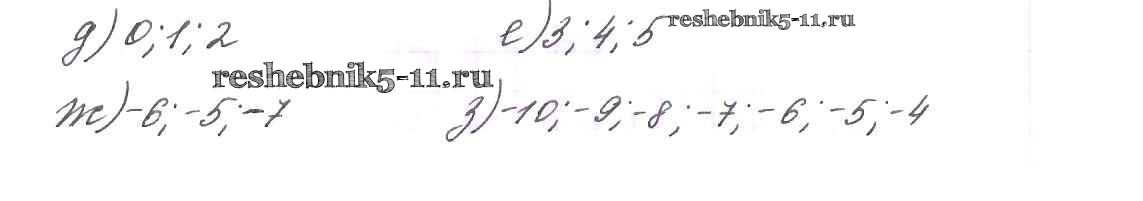 д) 0; 1; 2 е) 3; 4; 5 reshebnik5-11.ru
reshebnik5-11.ru
ж) -6; -5; -7 з) -10; -9; -8; -7; -6; -5; -4